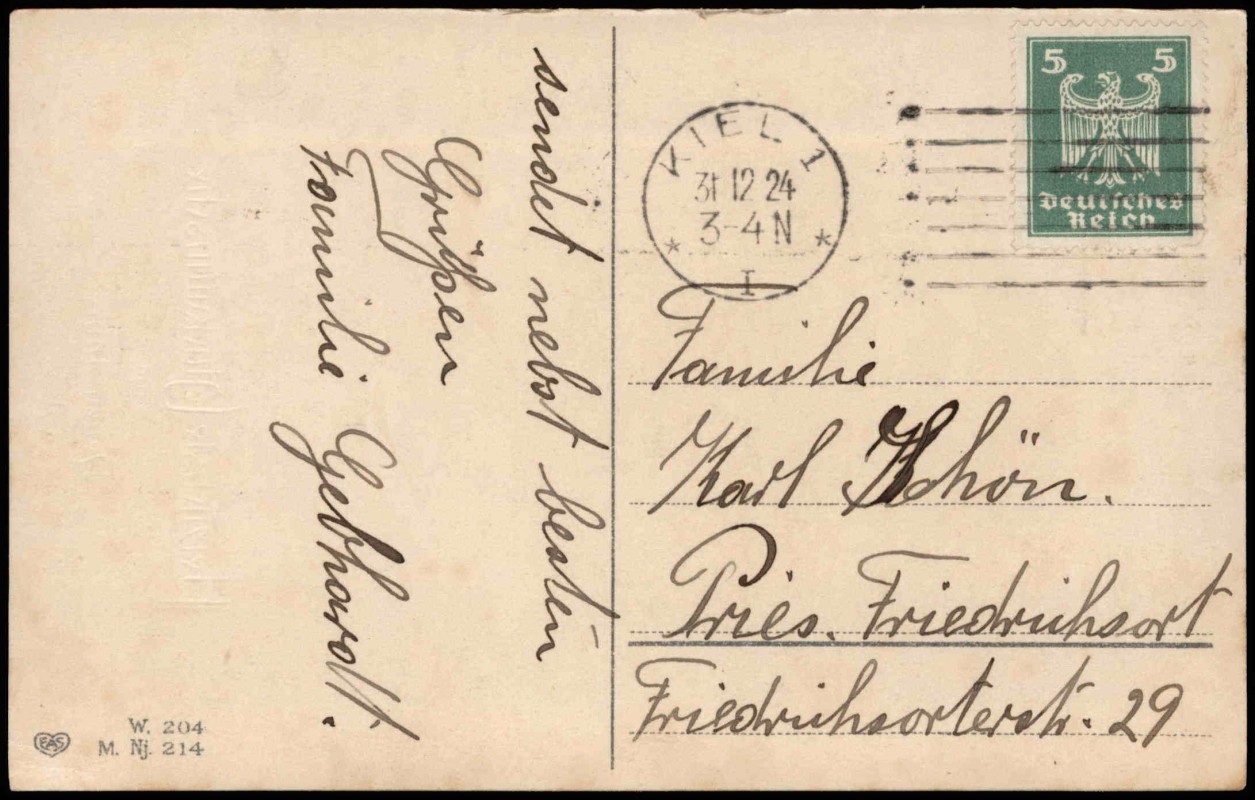 sendet nebst besten
Grüßen
Familie Gebhardt.
KIEL 1
31 12 24
3-4 N
I
5 5
Deutsches
Reich
Familie
Karl Schön.
Pries. Friedrichsort
Friedrichsorterstr. 29
EAS
W. 204
M. Nj. 214